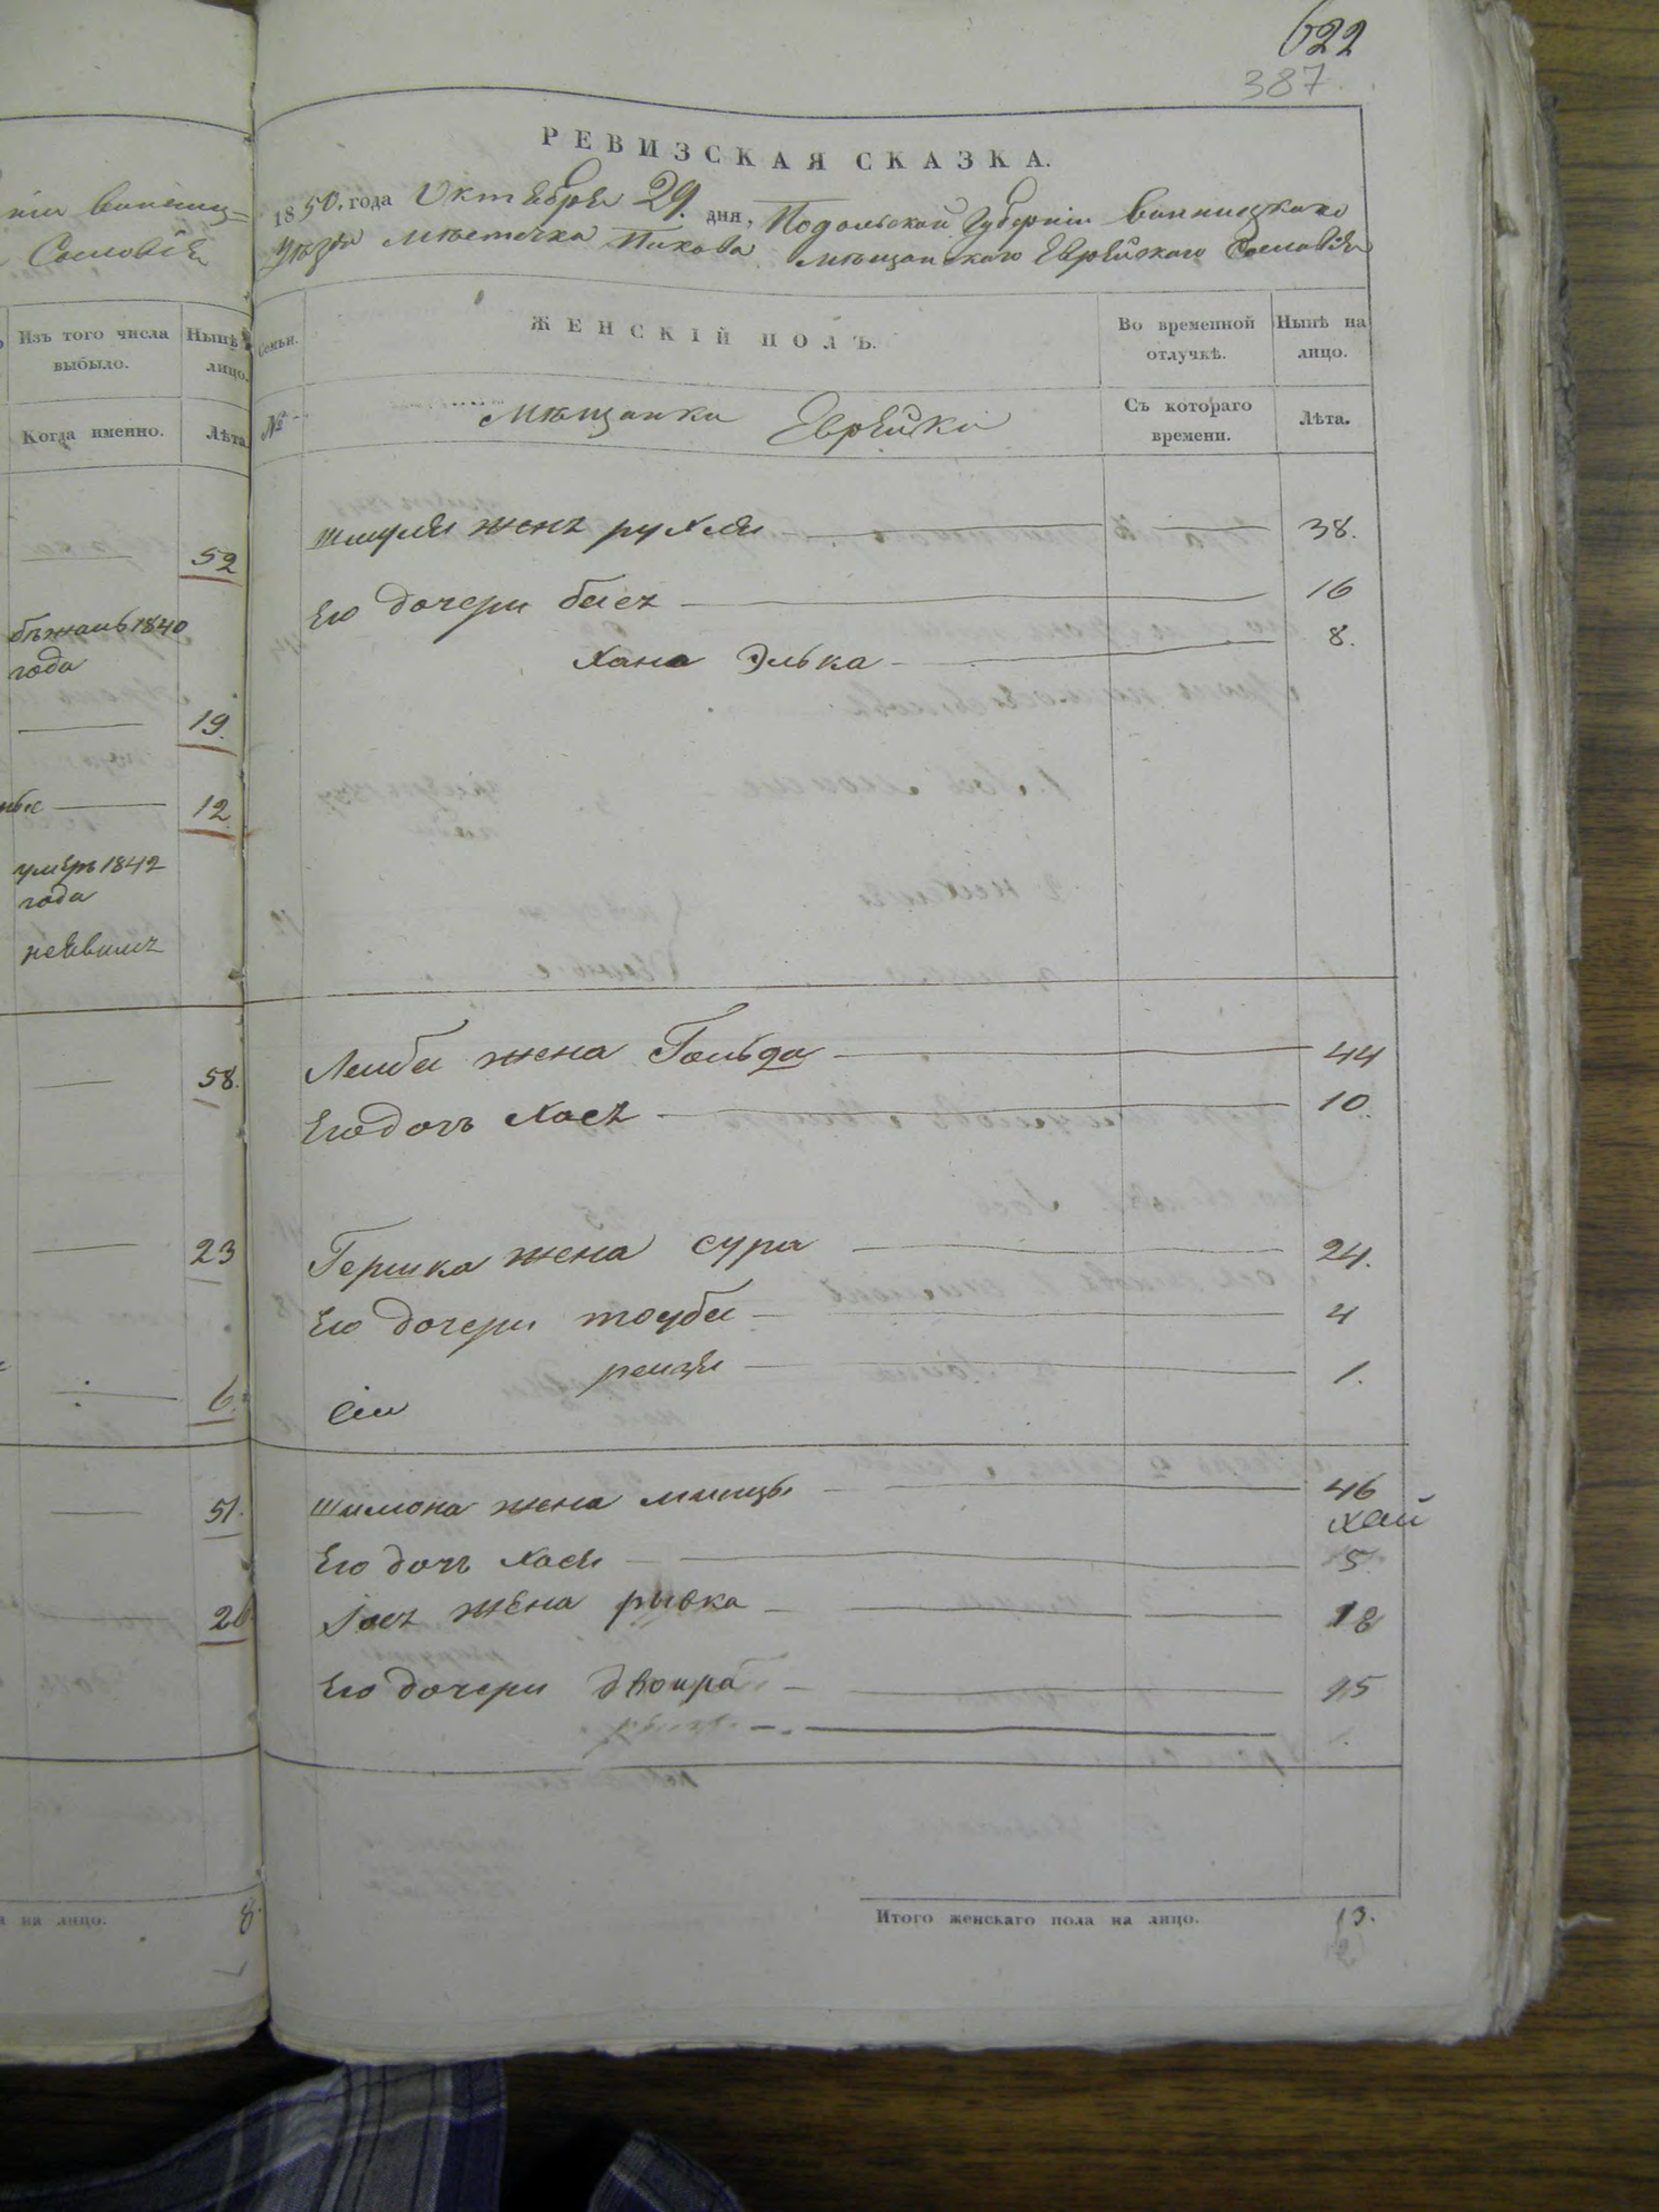 622
387
РЕВИЗСКАЯ СКАЗКА.
1850 года Октября 29. дня, Подольской Губерніи Винницкаго
уѣзда мѣстечка Пикова мѣщанскаго Еврейскаго Сословія
Сословія
Изъ того числа выбыло.
Нынѣ лицо.
Семьи.
ЖЕНСКІЙ ПОЛЪ.
Во временной отлучкѣ.
Нынѣ на лицо.
Когда именно.
Лѣта
№
Мѣщанки Еврейки
Съ котораго времени.
Лѣта.
52
Шмуля жена рухля 38.
Его дочери бася 16
бѣжалъ 1840
года
Хана Элька 8.
19.
12
умеръ 1842
года
неявился
58.
Лейбы жена Гольда 44
Его дочь Хася 10.
23
Гершка жена сура 24.
Его дочери тоуба 4
рейзя 1.
6.
сіи
51.
Шимона жена минцы 46
хай
Его дочь Хася 5
20
жена рывка 18
Его дочери двойра 15
на лицо. 8
Итого женскаго пола на лицо. 13.